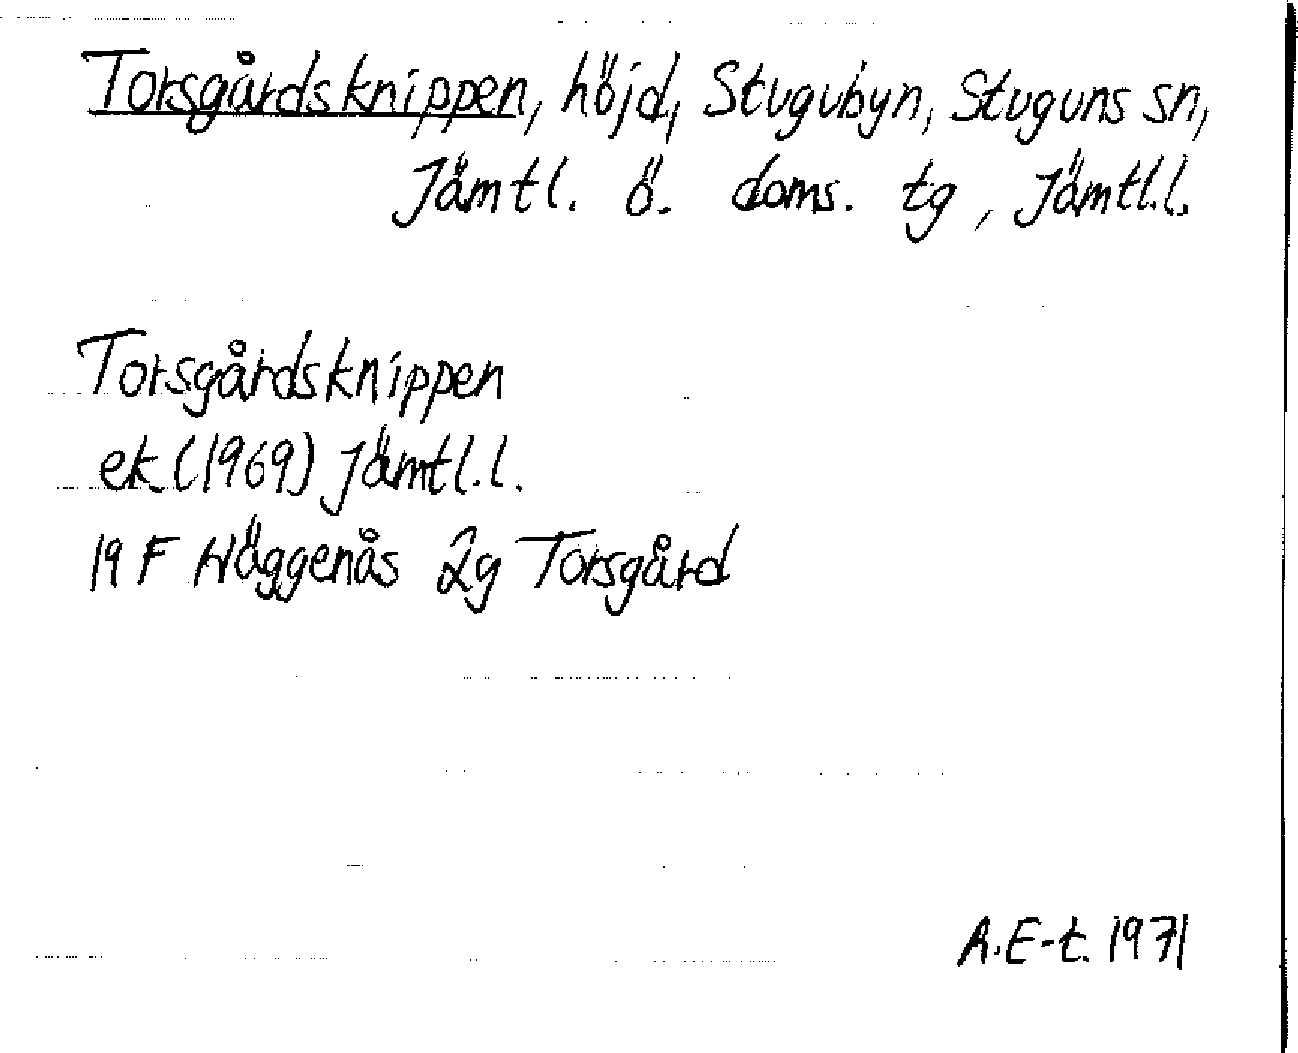 Torsgårdsknippen, höjd, Stugubyn, Stuguns sn,
Jämtl. ö. doms. tg, Jämtl.l.
Torsgårdsknippen
ek (1969) Jämtl.l.
19 F Häggenås 2g Torsgård
A.E-t. 1971